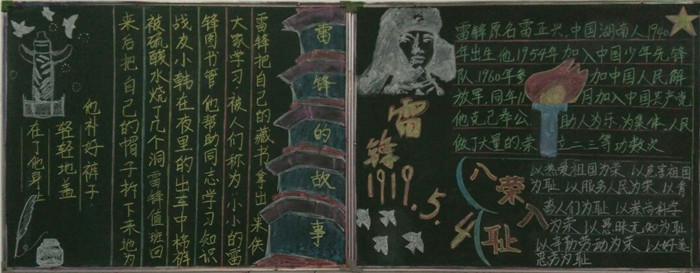 雷锋的故事
雷锋把自己的藏书拿出来供
大家学习 被人们称为小小的雷
锋图书馆 他帮助同志学习知识
战友小韩在夜里的出车中 棉裤
被硫酸水烧了几个洞 雷锋值班回
来后把自己的帽子折下来地为
他补好裤子
轻轻地盖
在了他身上
雷锋原名雷正兴,中国湖南人1940
年出生他1954年加入中国少年先锋
队,1960年参加中国人民解
放军,同年月加入中国共产党
他克己奉公助人为乐为集体,人民
做了大量的立二三等功数次
雷锋
1919.5.4
八荣八耻
以热爱祖国为荣 以危害祖国
为耻 以服务人民为荣 以背
人们为耻 以崇尚科学
为荣 以愚昧无知为耻
以辛勤劳动为荣 以好逸
恶劳为耻